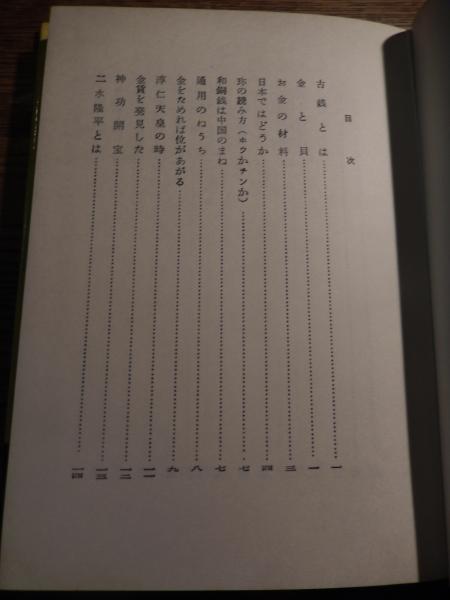 目次
古銭とは……一
金と貝……一
お金の材料……三
日本ではどうか……四
珎の読み方（ホウかチンか）……七
和銅銭は中国のまね……七
通用のねうち……八
金をためれば位があがる……九
淳仁天皇の時……一一
金貨を発見した……一二
神功開宝……一三
二水隆平とは……一四